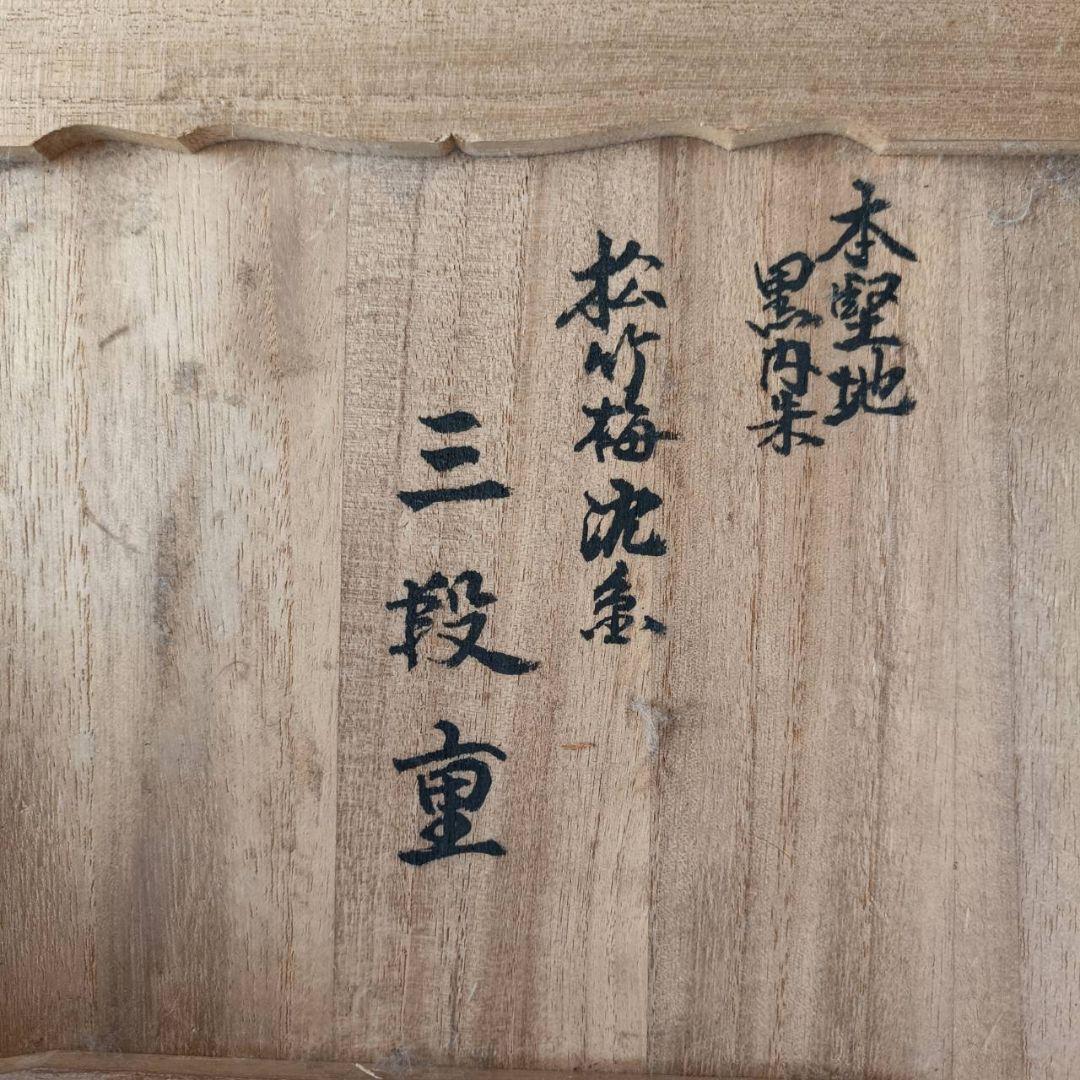 本堅地
黒内朱
松竹梅沈金
三段重